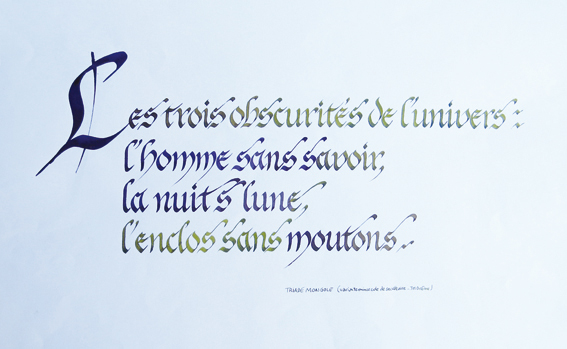 Les trois obscurités de l'univers :
l'homme sans savoir,
la nuit s' lune,
l'enclos sans moutons.
TRIADE MONGOLE